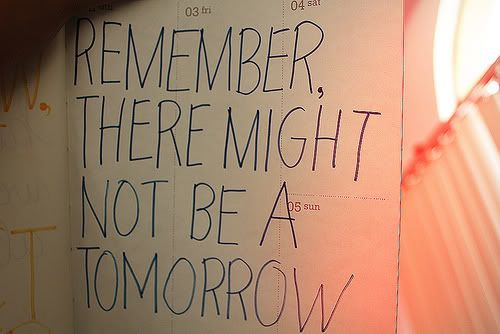 03 fri
04 sat
REMEMBER,
THERE MIGHT
NOT BE A
05 sun
TOMORROW